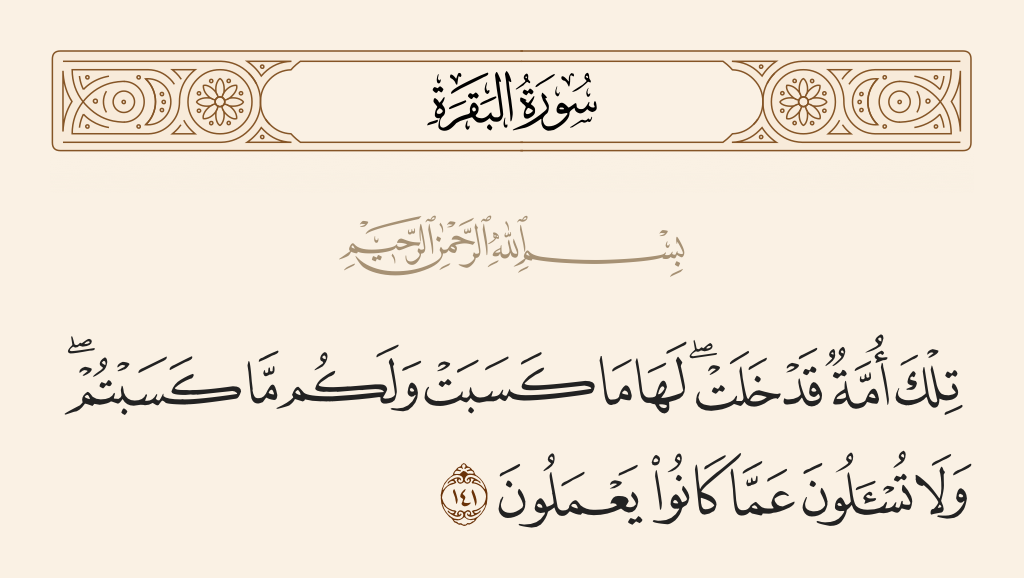 سُورَةُ البَقَرَةِ
بِسْمِ ٱللَّهِ ٱلرَّحْمَٰنِ ٱلرَّحِيمِ
تِلْكَ أُمَّةٌ قَدْ خَلَتْ ۖ لَهَا مَا كَسَبَتْ وَلَكُم مَّا كَسَبْتُمْ ۖ
وَلَا تُسْـَٔلُونَ عَمَّا كَانُوا۟ يَعْمَلُونَ ١٤١